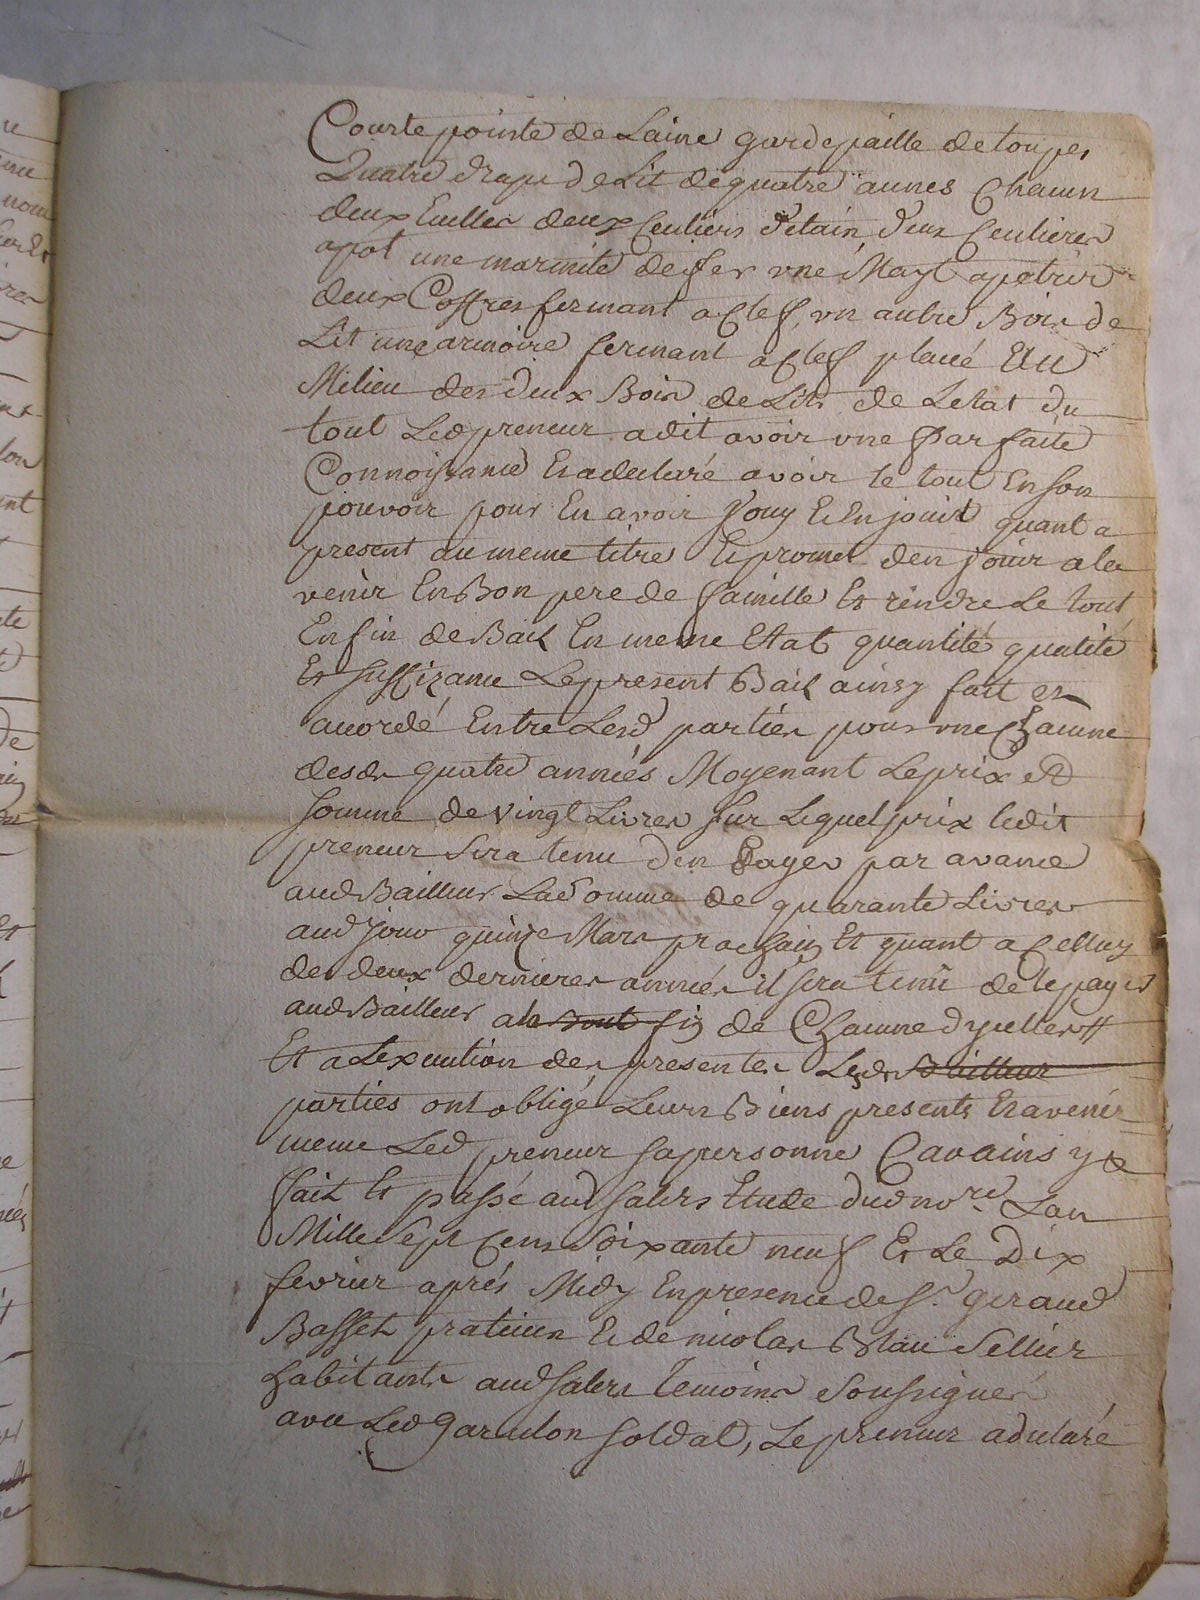 Courte pointe de Laine garde paille de toupes
Quatre draps de Lit de quatre aunes Chacun
deux Ecuelles deux Ceuliers d'etain, deux Ceulieres
apot une marmite de fer une Mayt a petrir
deux Coffres fermant a Clef, un autre Bois de
Lit une armoire fermant a Clef placé Au
Milieu des deux Bois de Lits de Letat du
tout Led preneur a dit avoir une parfaite
Connoissance Et a declaré avoir le tout En son
pouvoir pour En avoir Jouy Et En jouit quant a
present au meme titre Et promet den jouir a la
venir En Bon pere de famille Et rendre Le tout
En fin de Bail En meme Etat quantité qualité
Et suffizance Le present Bail ainsy fait et
accordé Entre Lesd parties pour une Chacune
desd quatre années Moyenant Le prix et
somme de vingt Livres sur Lequel prix ledit
preneur sera tenu den payer par avance
aud Bailleur La somme de quarante Livres
aud jour quinze Mars prochain Et quant a Celluy
des deux dernieres années il sera tenu de le payer
aud Bailleur a la bout fin de Chacune dycelles
Et a Lexecution des presentes Lesd Bailleur
parties ont obligé Leurs Biens presents Et avenir
meme Led preneur sa personne Car ainsy &
fait Et passé aud Salers Etude dud no.re Lan
Mille Sept Cens Soixante neuf Et Le Dix
fevrier aprés Midy En presence de S.r geraud
Basset praticien Et de nicolas Blau Sellier
habitants aud Salers Temoins Soussignés
avec Led garcelon soldat, Le preneur a declaré